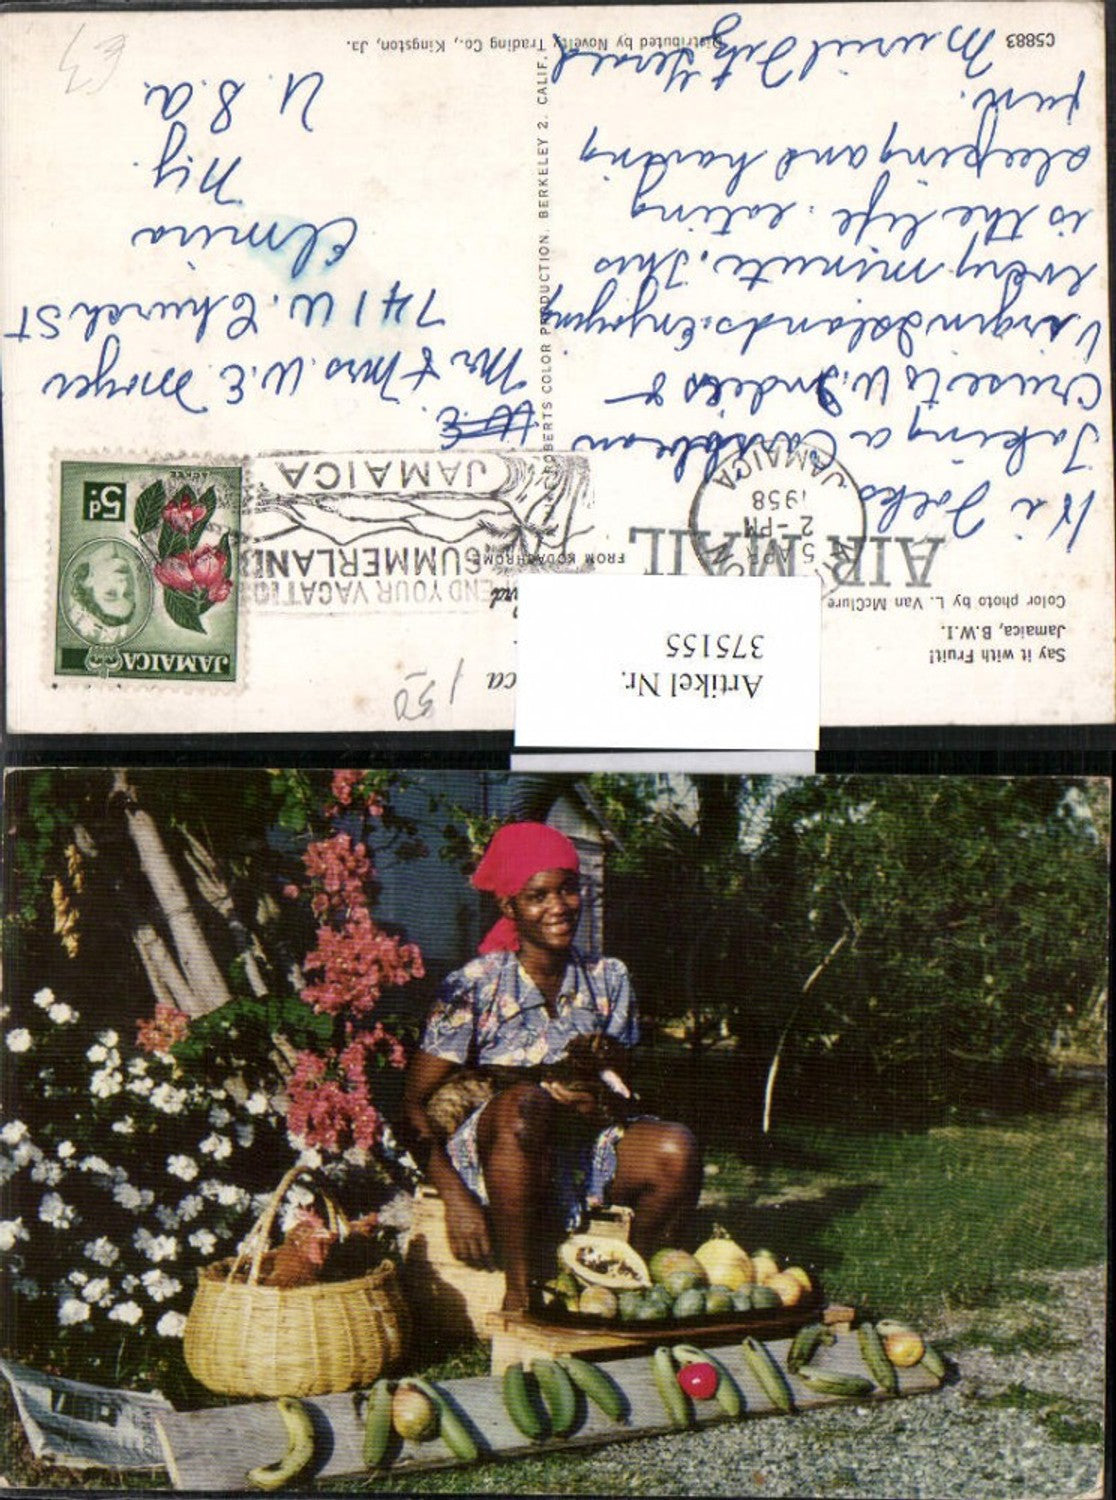 Say it with Fruit!
Jamaica, B.W.I.
Color photo by L. Van McClure
AIR MAIL
Hi Folks
Taking a Caribbean
Cruise to W. Indies &
Virgin Islands. Enjoying
every minute. This
is the life: eating
sleeping and having
fun.
Muriel Fitz Gerald
C5883
Distributed by Novelty Trading Co., Kingston, Ja.
ROBERTS COLOR PRODUCTION, BERKELEY 2, CALIF.
FROM KODACHROME
KINGSTON
5 APR
2 - PM
1958
JAMAICA
SPEND YOUR VACATION
SUMMERLAND
JAMAICA
JAMAICA
5d
ACKEE
W. E.
Mr & Mrs. W. E. Moyer
741 W. Church St
Elmira
N.Y.
U. S. A.
Artikel Nr.
375155
150
£3